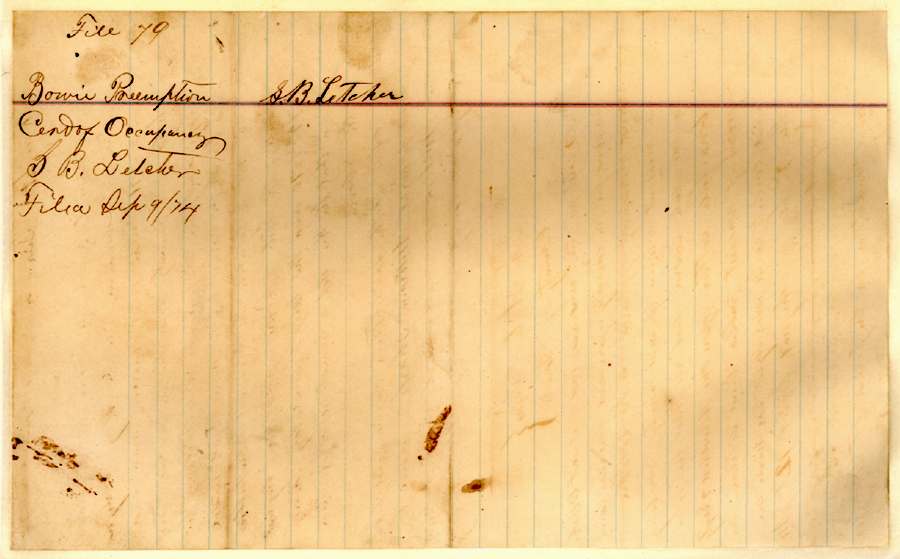 File 79
Bowie Preemption J. B. Letcher
Cert of Occupancy
J B. Letcher
Filed Sep 9/74